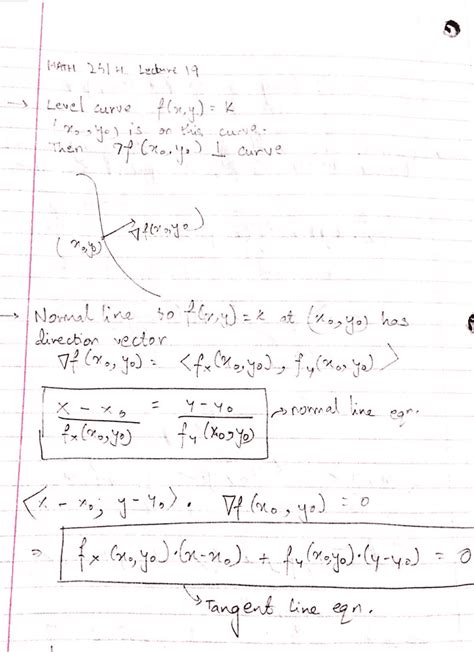 MATH 251H Lecture 19
→ Level curve f(x,y) = k
(x₀, y₀) is on this curve.
Then ∇f(x₀, y₀) ⊥ curve
∇f(x₀, y₀)
(x₀, y₀)
→ Normal line to f(x,y) = k at (x₀, y₀) has
direction vector
∇f(x₀, y₀) = <fₓ(x₀, y₀), f_y(x₀, y₀)>
(x - x₀)/fₓ(x₀, y₀) = (y - y₀)/f_y(x₀, y₀) → normal line eqn.
<x - x₀, y - y₀> · ∇f(x₀, y₀) = 0
⇒ fₓ(x₀, y₀)·(x-x₀) + f_y(x₀, y₀)·(y-y₀) = 0
→ Tangent line eqn.